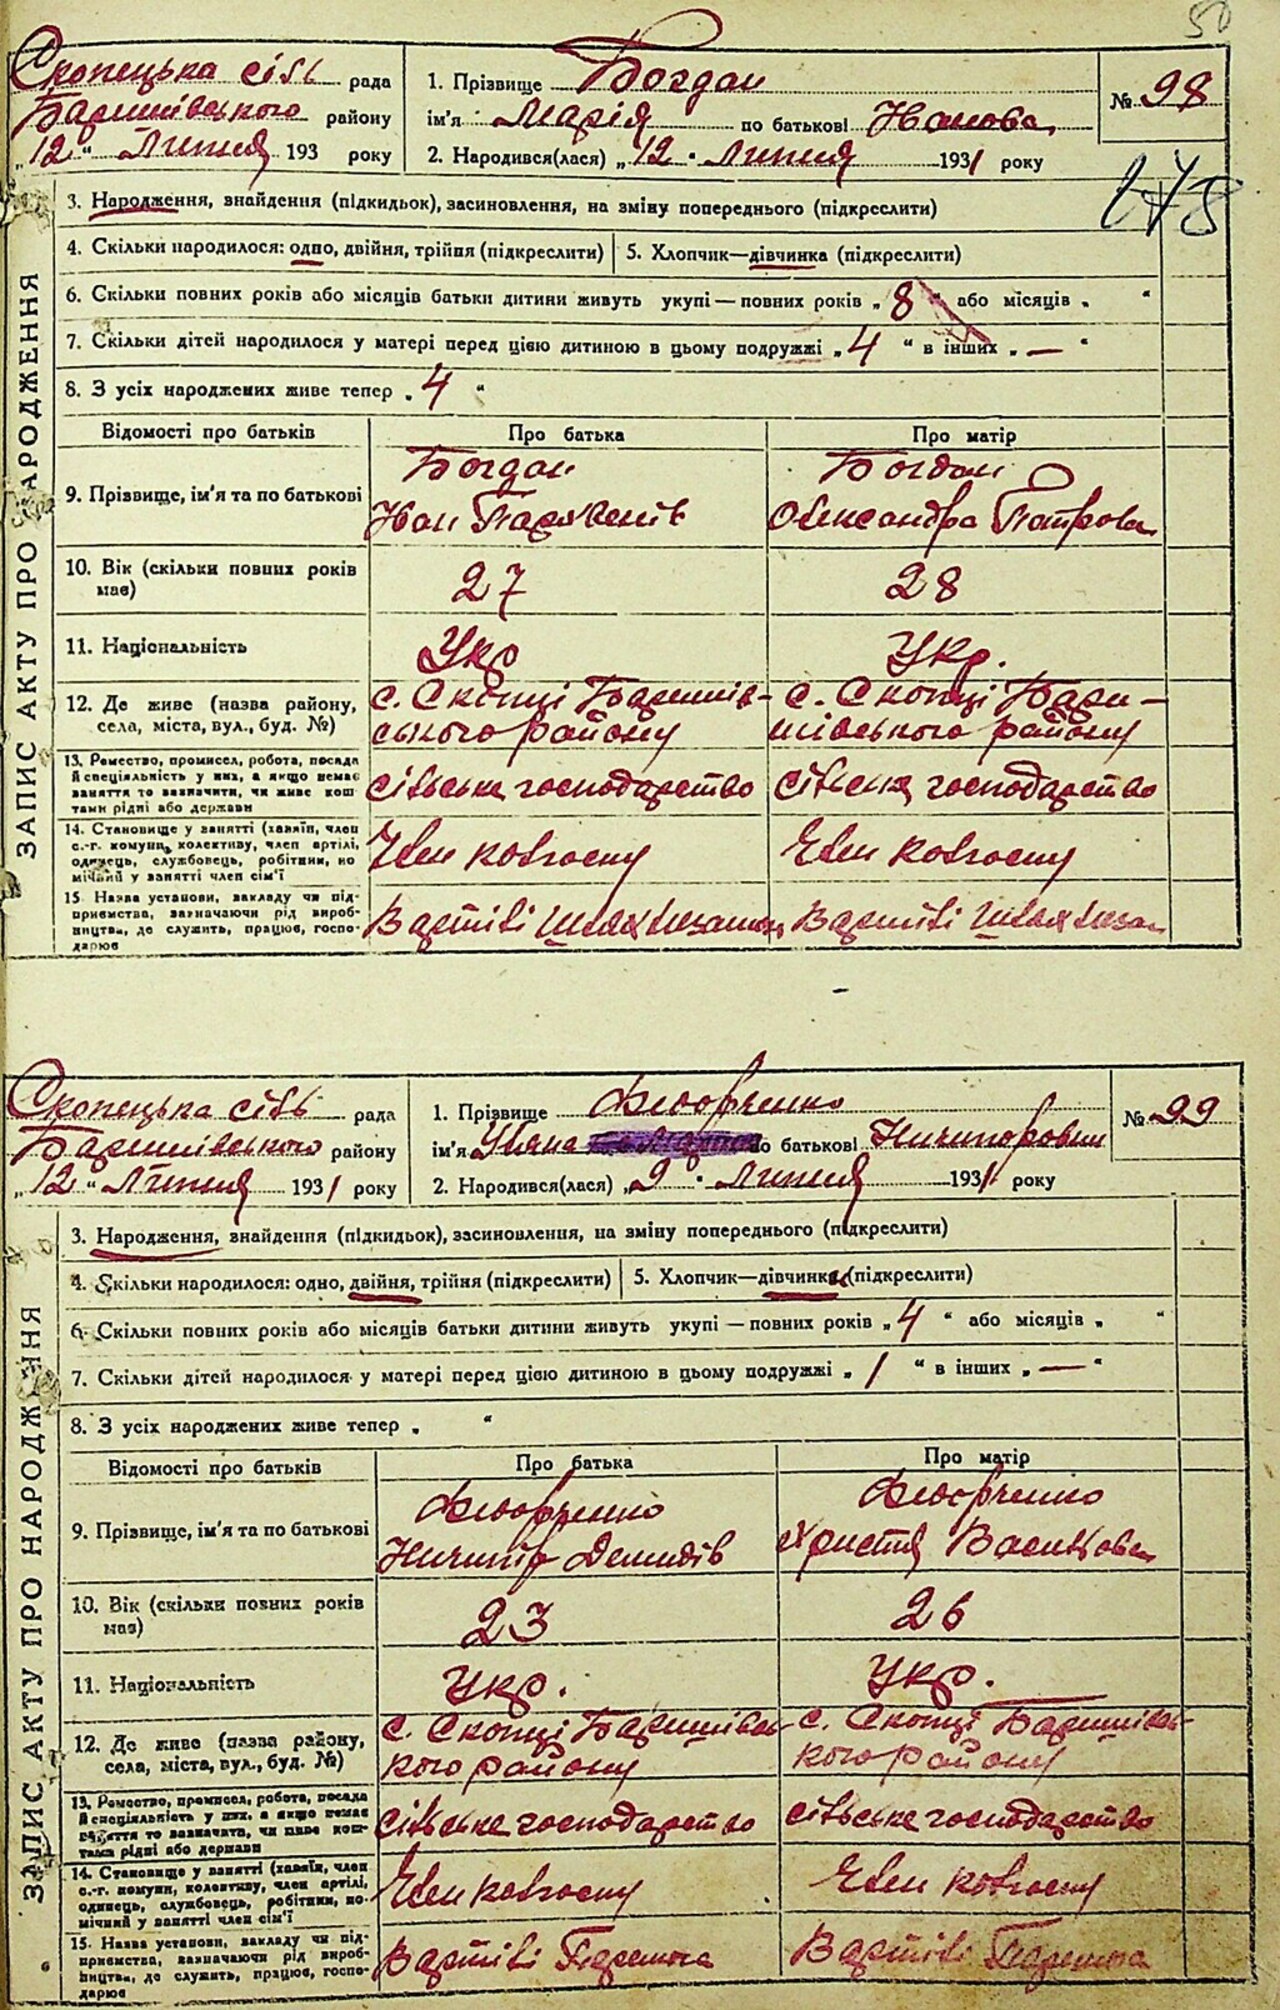 50
Скопецька сіль рада
Баришівського району
„12“ Липня 193 року
1. Прізвище Богдан
ім'я Марія по батькові Иванова
2. Народився(лася) „12“ Липня 1931 року
№ 98
278
ЗАПИС АКТУ ПРО НАРОДЖЕННЯ
3. Народження, знайдення (підкидьок), засиновлення, на зміну попереднього (підкреслити)
4. Скільки народилося: одно, двійня, трійня (підкреслити)
5. Хлопчик—дівчинка (підкреслити)
6. Скільки повних років або місяців батьки дитини живуть укупі — повних років „8“ або місяців „ “
7. Скільки дітей народилося у матері перед цією дитиною в цьому подружжі „4“ в інших „—“
8. З усіх народжених живе тепер „4“
Відомості про батьків Про батька Про матір
9. Прізвище, ім'я та по батькові
Богдан
Иван
Богдан
Олександра Петрова
10. Вік (скільки повних років
має)
27
28
11. Національність
Укр
Укр.
12. Де живе (назва району,
села, міста, вул., буд. №)
с. Скопці Баришів-
ського району
с. Скопці Бари-
шівського району
13. Ремество, промисел, робота, посада
й спеціальність у них, а якщо немає
заняття то зазначити, чи живе кош
тами рідні або держави
сільське господарство
сільське господарство
14. Становище у занятті (хазяїн, член
с.-г. комуни, колективу, член артілі,
одинець, службовець, робітник, по
мічний у занятті член сім'ї
Член колгоспу
Член колгоспу
15 Назва установи, закладу чи під-
приємства, зазначаючи рід вироб-
ництва, де служить, працює, госпо-
дарює
В артілі Шлях
В артілі Шлях
Скопецька сіль рада
Баришівського району
„12“ Липня 1931 року
1. Прізвище Федорченко
ім'я Уляна по батькові Ничипоровна
2. Народився(лася) „9“ Липня 1931 року
№ 99
ЗАПИС АКТУ ПРО НАРОДЖЕННЯ
3. Народження, знайдення (підкидьок), засиновлення, на зміну попереднього (підкреслити)
4. Скільки народилося: одно, двійня, трійня (підкреслити)
5. Хлопчик—дівчинка (підкреслити)
6. Скільки повних років або місяців батьки дитини живуть укупі — повних років „4“ або місяців „ “
7. Скільки дітей народилося у матері перед цією дитиною в цьому подружжі „1“ в інших „—“
8. З усіх народжених живе тепер „ “
Відомості про батьків Про батька Про матір
9. Прізвище, ім'я та по батькові
Федорченко
Ничипір Демидів
Федорченко
Христя Василівна
10. Вік (скільки повних років
має)
23
26
11. Національність
Укр.
Укр.
12. Де живе (назва району,
села, міста, вул., буд. №)
с. Скопці Баришівсь-
кого району
с. Скопці Баришівсь-
кого району
13. Ремество, промисел, робота, посада
й спеціальність у них, а якщо немає
заняття то зазначити, чи живе кош-
тами рідні або держави
сільське господарство
сільське господарство
14. Становище у занятті (хазяїн, член
с.-г. комуни, колективу, член артілі,
одинець, службовець, робітник, по-
мічний у занятті член сім'ї
Член колгоспу
Член колгоспу
15. Назва установи, закладу чи під-
приємства, зазначаючи рід вироб-
ництва, де служить, працює, госпо-
дарює
В артілі Перемога
В артілі Перемога